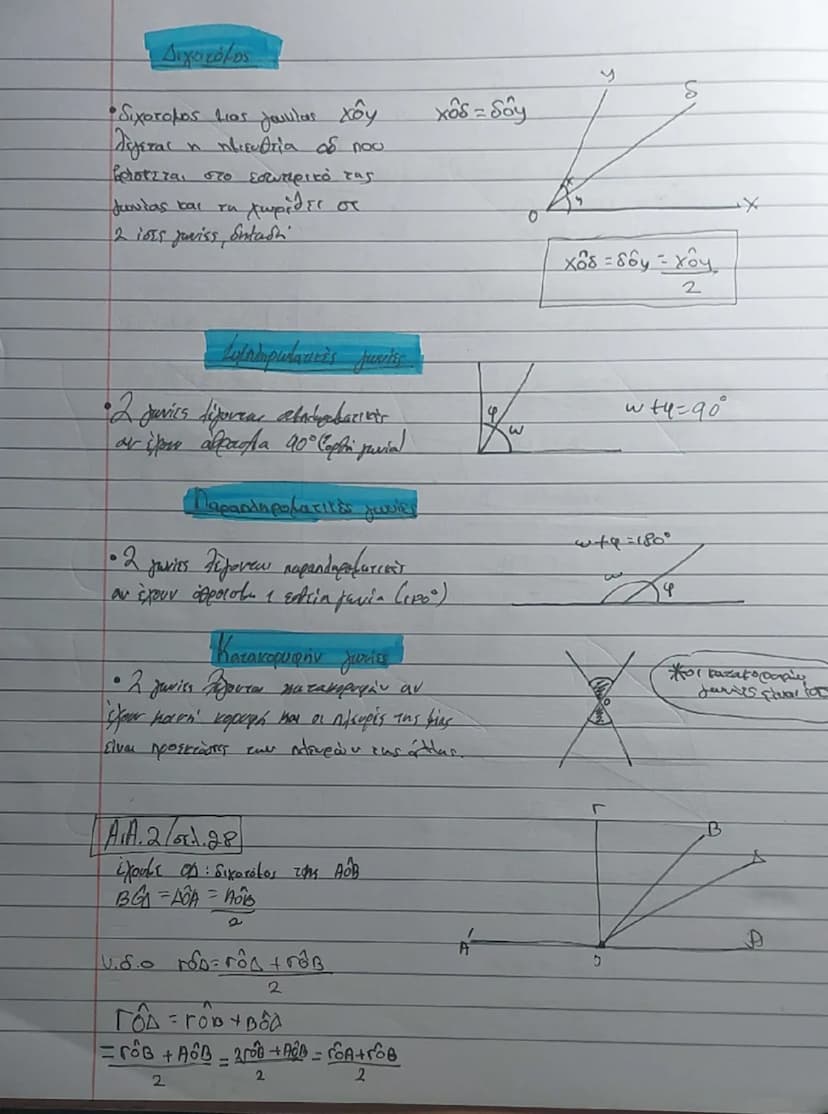 Διχοτόμος
• διχοτόμος μιας γωνίας xÔy
xÔδ = δÔy
λέγεται η ημιευθεία Oδ που
βρίσκεται στο εσωτερικό της
γωνίας και τη χωρίζει σε
2 ίσες γωνίες, δηλαδή:
y
δ
O
x
xÔδ = δÔy = xÔy/2
Συμπληρωματικές γωνίες
• 2 γωνίες λέγονται συμπληρωματικές
αν έχουν άθροισμα 90° (ορθή γωνία)
φ
ω
ω+φ=90°
Παραπληρωματικές γωνίες
• 2 γωνίες λέγονται παραπληρωματικές
αν έχουν άθροισμα 1 ευθεία γωνία (180°)
ω+φ=180°
ω
φ
Κατακορυφήν γωνίες
• 2 γωνίες λέγονται κατακορυφήν αν
έχουν κοινή κορυφή και οι πλευρές της μίας
είναι προεκτάσεις των πλευρών της άλλης.
*οι κατακορυφήν
γωνίες είναι
Α.Α.2/σελ.28
έχουμε ΟΔ: διχοτόμος της ΑÔΒ
ΒÔΔ = ΔÔΑ = ΑÔΒ/2
ν.δ.ο ΓÔΔ = ΓÔΑ + ΓÔΒ/2
ΓÔΔ = ΓÔΒ + ΒÔΔ
= ΓÔΒ + ΑÔΒ/2 = 2ΓÔΒ + ΑÔΒ/2 = ΓÔΑ+ΓÔΒ/2
Γ
Β
Δ
Α'
Ο
Α